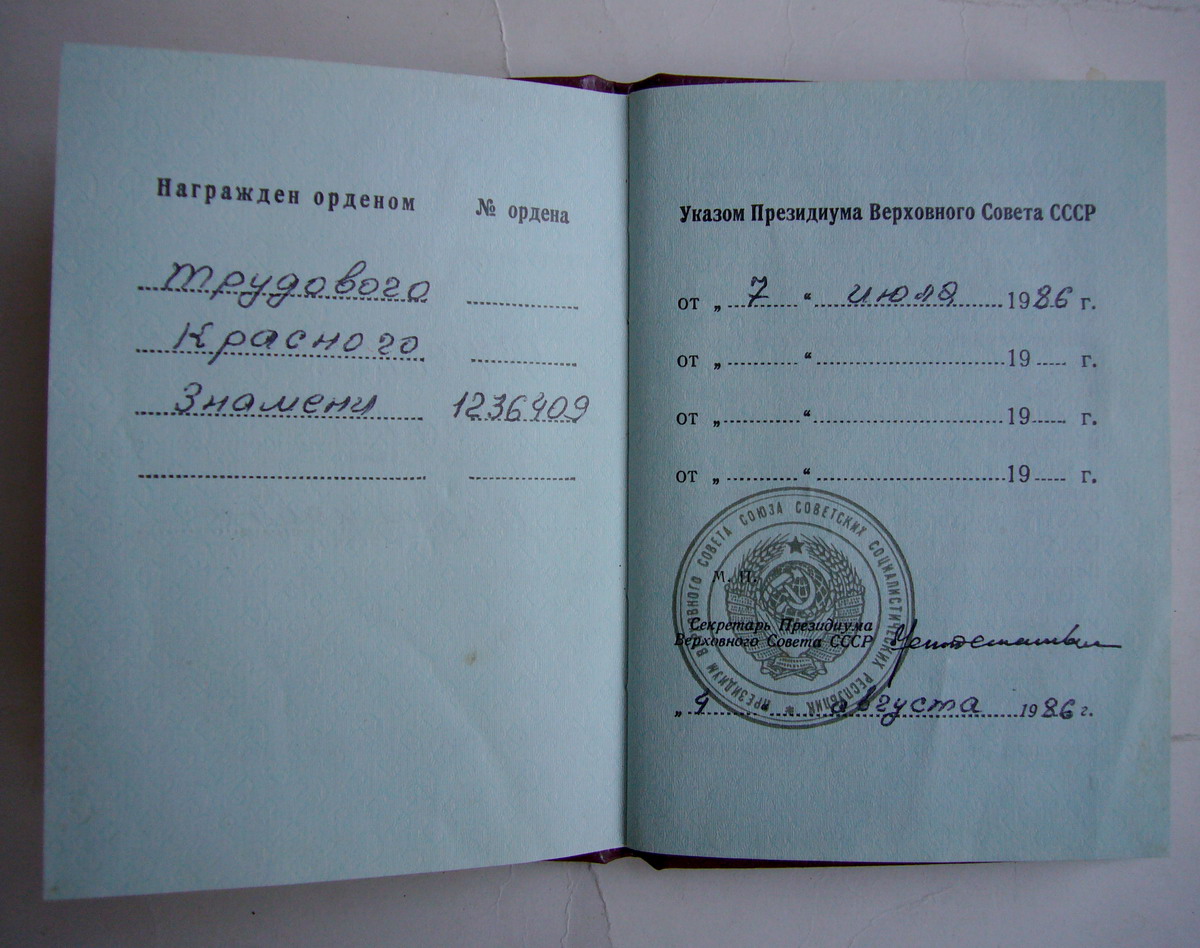 Награжден орденом № ордена
Трудового
Красного
Знамени 1236409
Указом Президиума Верховного Совета СССР
от „ 7 “ июля 1986 г.
от „ “ 19 г.
от „ “ 19 г.
от „ “ 19 г.
ПРЕЗИДИУМ ВЕРХОВНОГО СОВЕТА СОЮЗА СОВЕТСКИХ СОЦИАЛИСТИЧЕСКИХ РЕСПУБЛИК
М. П.
Секретарь Президиума
Верховного Совета СССР
„ 4 августа 1986 г.